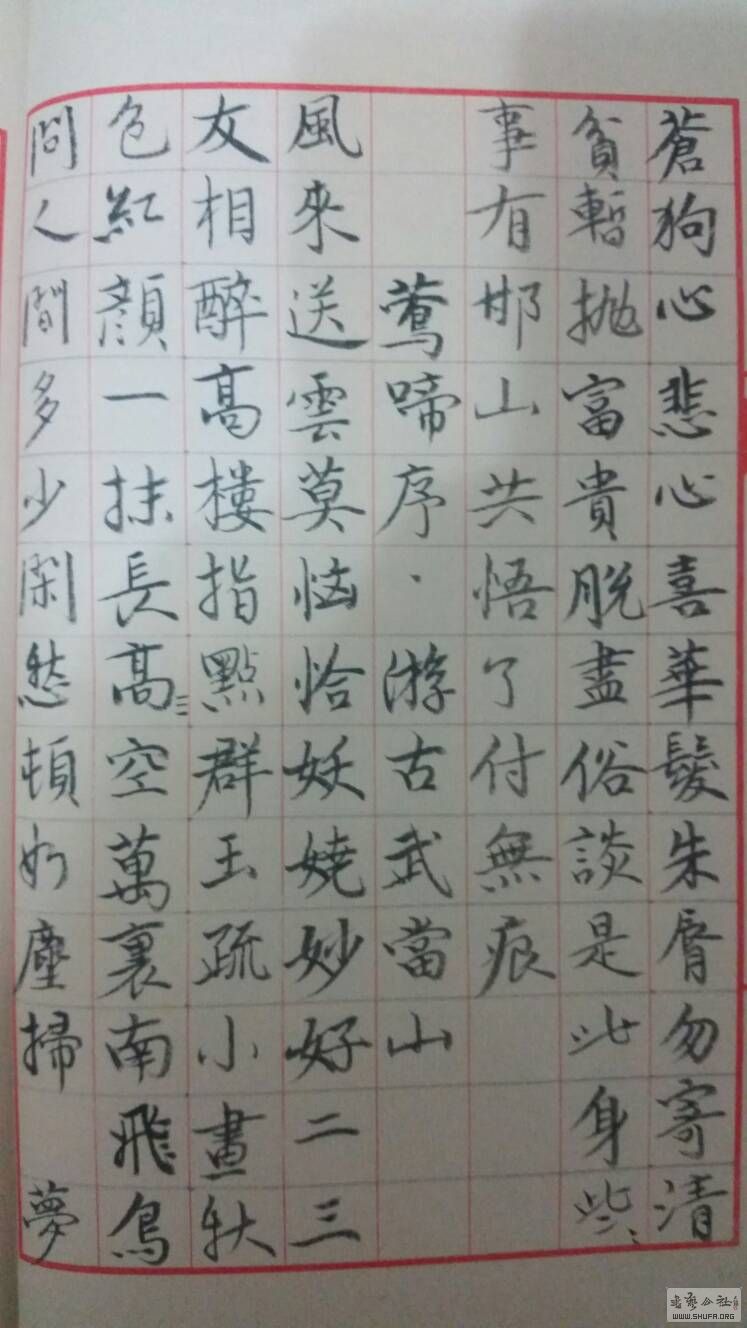 蒼狗心悲心喜華髮朱脣勿寄清
貧暫拋富貴脫盡俗談是此身些
事有邯山共悟了付無痕
鶯啼序·游古武當山
風來送雲莫恼恰妖嬈妙好二三
友相醉高樓指點群玉疏小畫秋
色紅顏一抹長高空萬裏南飛鳥
問人間多少閑愁頓如塵掃 夢
書藝公社
WWW.SHUFA.ORG